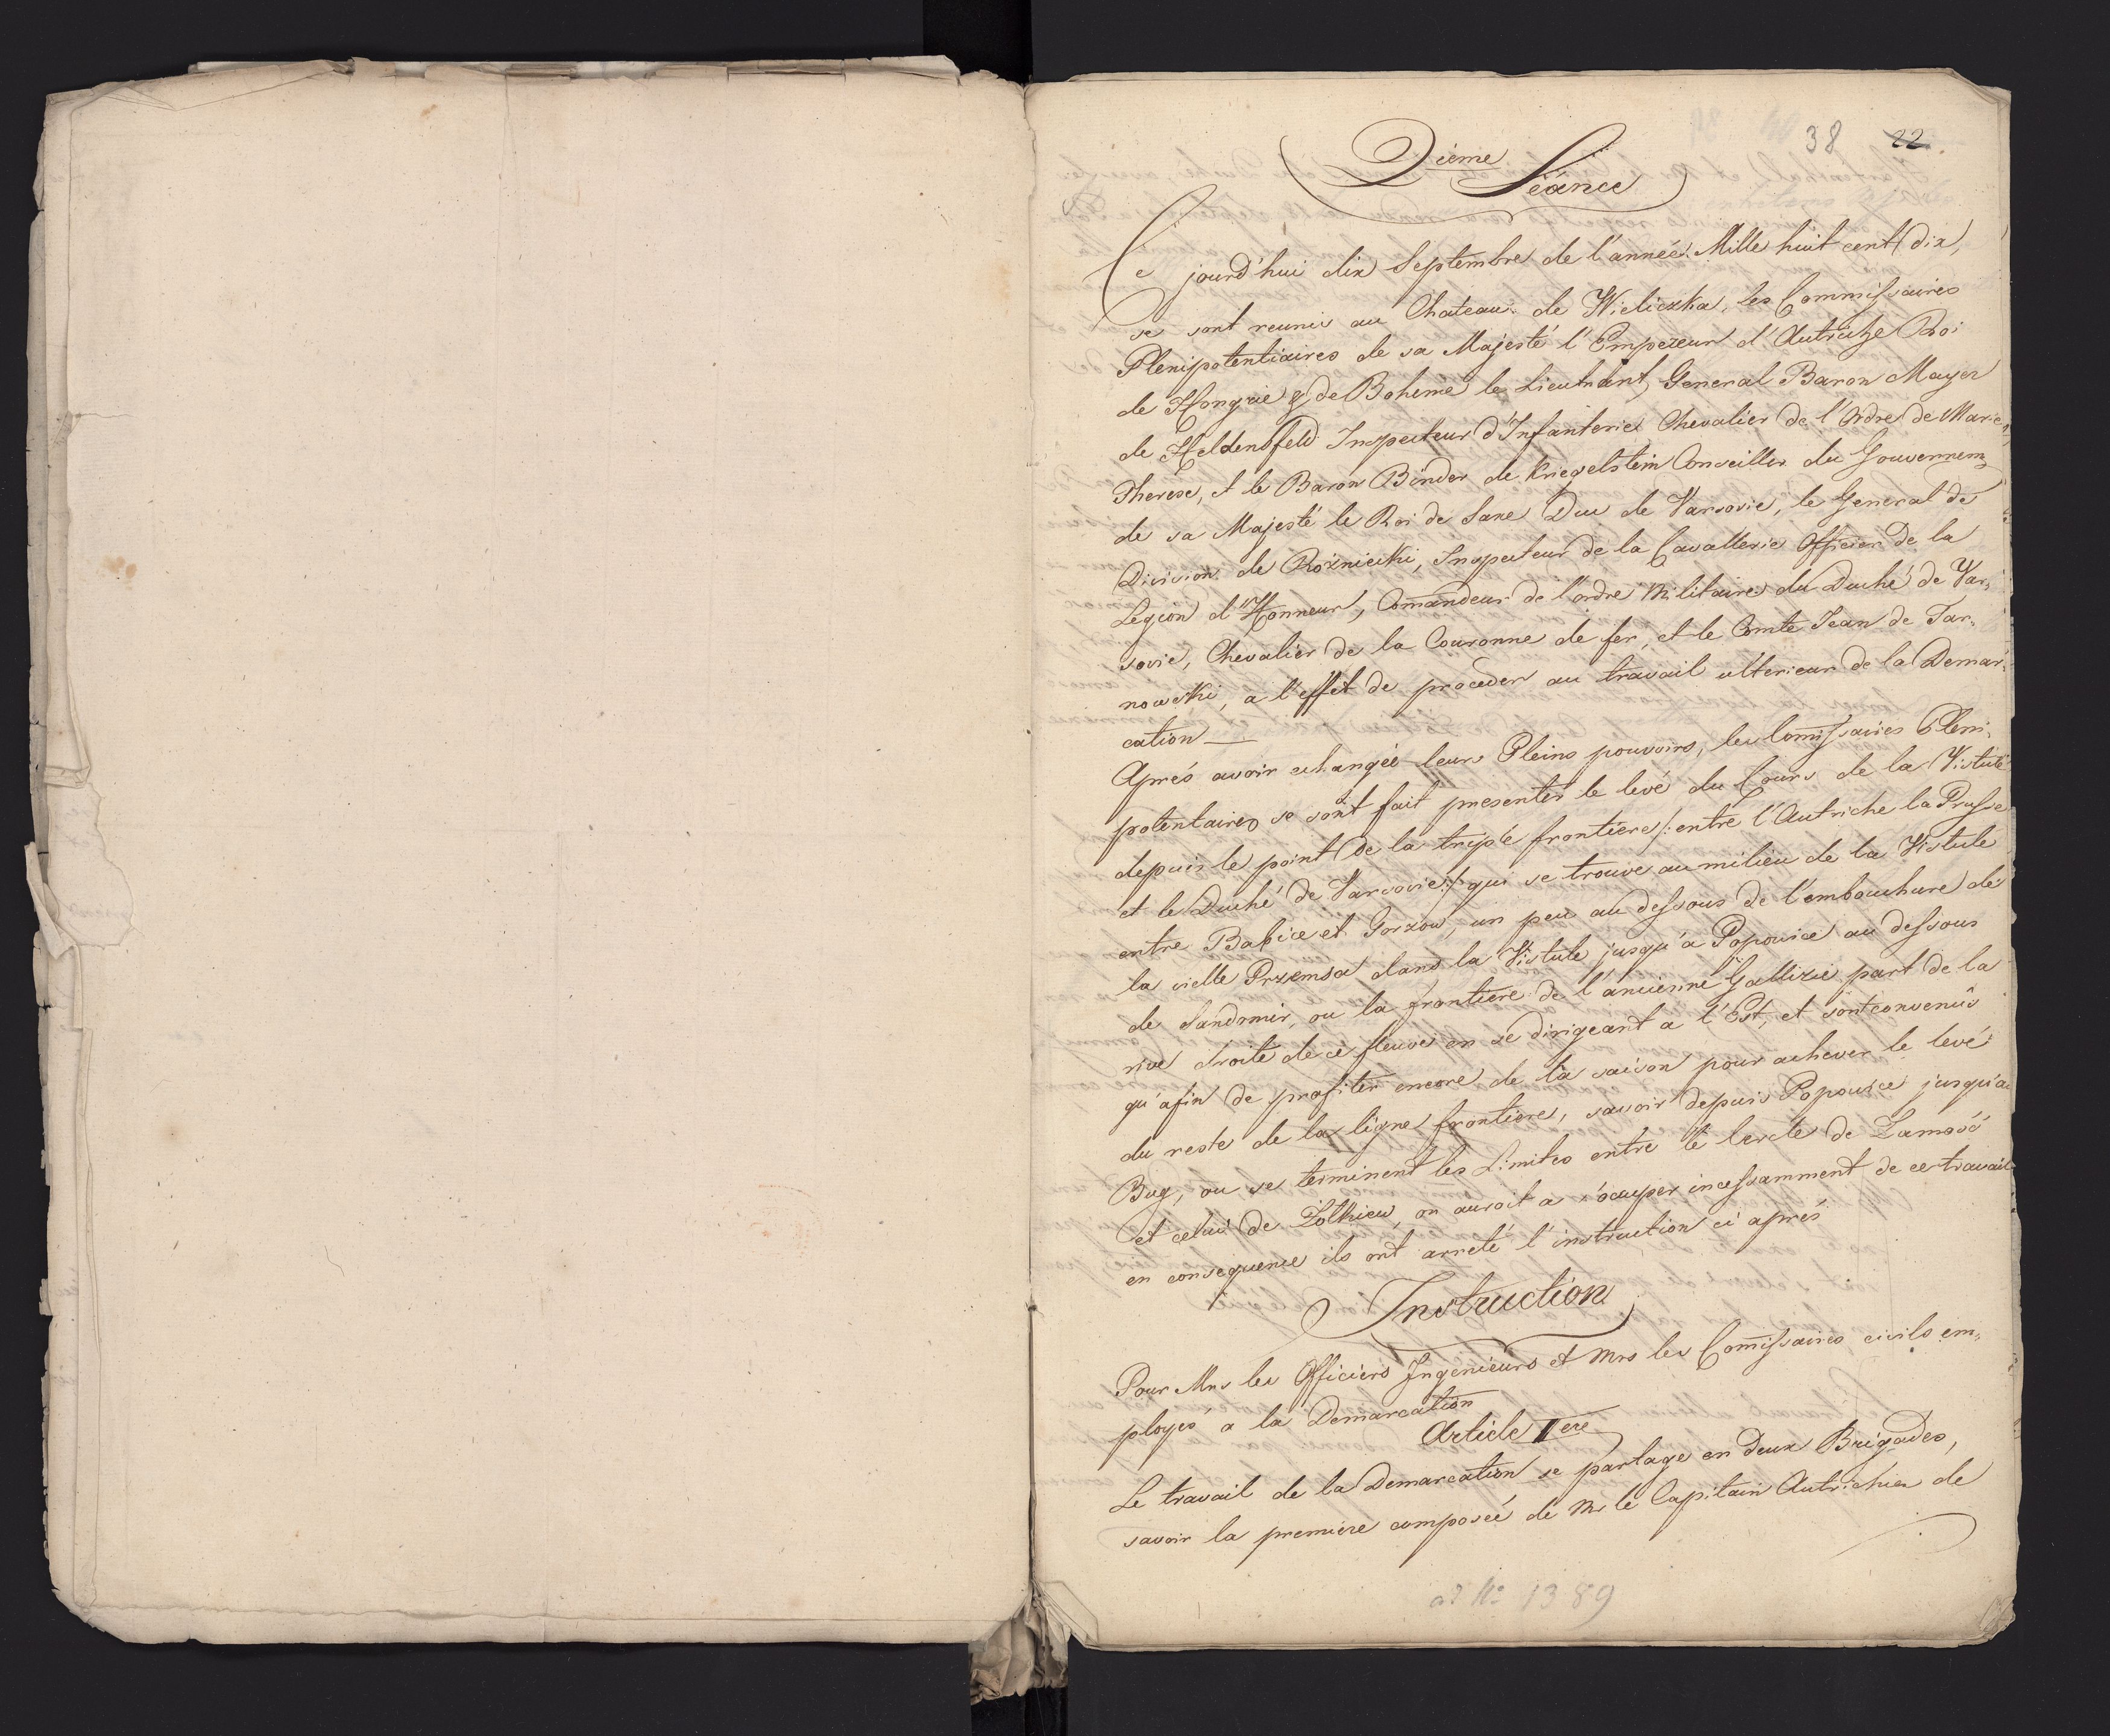 38 22.
2ieme Séance
Ce jourd'hui dix Septembre de l'année Mille huit cent dix,
se sont reunis au Chateau de Wieliczka, les Commissaires
Plenipotentiaires de sa Majesté l'Empereur d'Autriche Roi
de Hongrie & de Boheme le Lieutnant General Baron Mayer
de Heldensfeld Inspecteur d'Infanterie Chevalier de l'Ordre de Marie
Therese, et le Baron Binder de Kriegelstein Conseiller du Gouvernem
de sa Majesté le Roi de Saxe Duc de Varsovie, le General de
Division de Rożniecki, Inspecteur de la Cavallerie Officier de la
Legion d'Honneur, Comandeur de l'ordre Militaire du Duché de Var,
sovie, Chevalier de la Couronne de fer, et le Comte Jean de Tar,
nowski, a l'effet de proceder au travail ulterieur de la Demar,
cation —
Aprés avoir echangée leurs Pleins pouvoirs, les Comissaires Pleni,
potentaires se sont fait presenter le levé du Cours de la Vistule
depuis le point de la triple frontiere /: entre l'Autriche la Prusse
et le Duché de Varsovie :/ qui se trouve au milieu de la Vistule
entre Babice et Gorzow, un peu au dessous de l'embouchure de
la vielle Przemsa dans la Vistule jusqu'a Popowice au dessous
de Sandomir, ou la frontiere de l'ancienne Gallizie part de la
rive droite de ce fleuve en se dirigeant a l'Est, et sont convenus
qu'afin de profiter encore de la saison pour achever le levé
du reste de la ligne frontiere, savoir depuis Popowice jusqu'au
Bug, ou se terminent les Limites entre le Cercle de Zamość
et celui de Zolkiew, on auroit a s'ocuper incessamment de ce travail
en consequence ils ont arreté l'instruction ci aprés
Instruction
Pour Mrs les Officiers Ingenieurs et Mrs les Comissaires civils em,
ployés a la Demarcation
Article Iere
Le travail de la Demarcation se partage en deux Brigades,
savoir la premiere composée de Mr le Capitain Autrichien de
ad No 1389